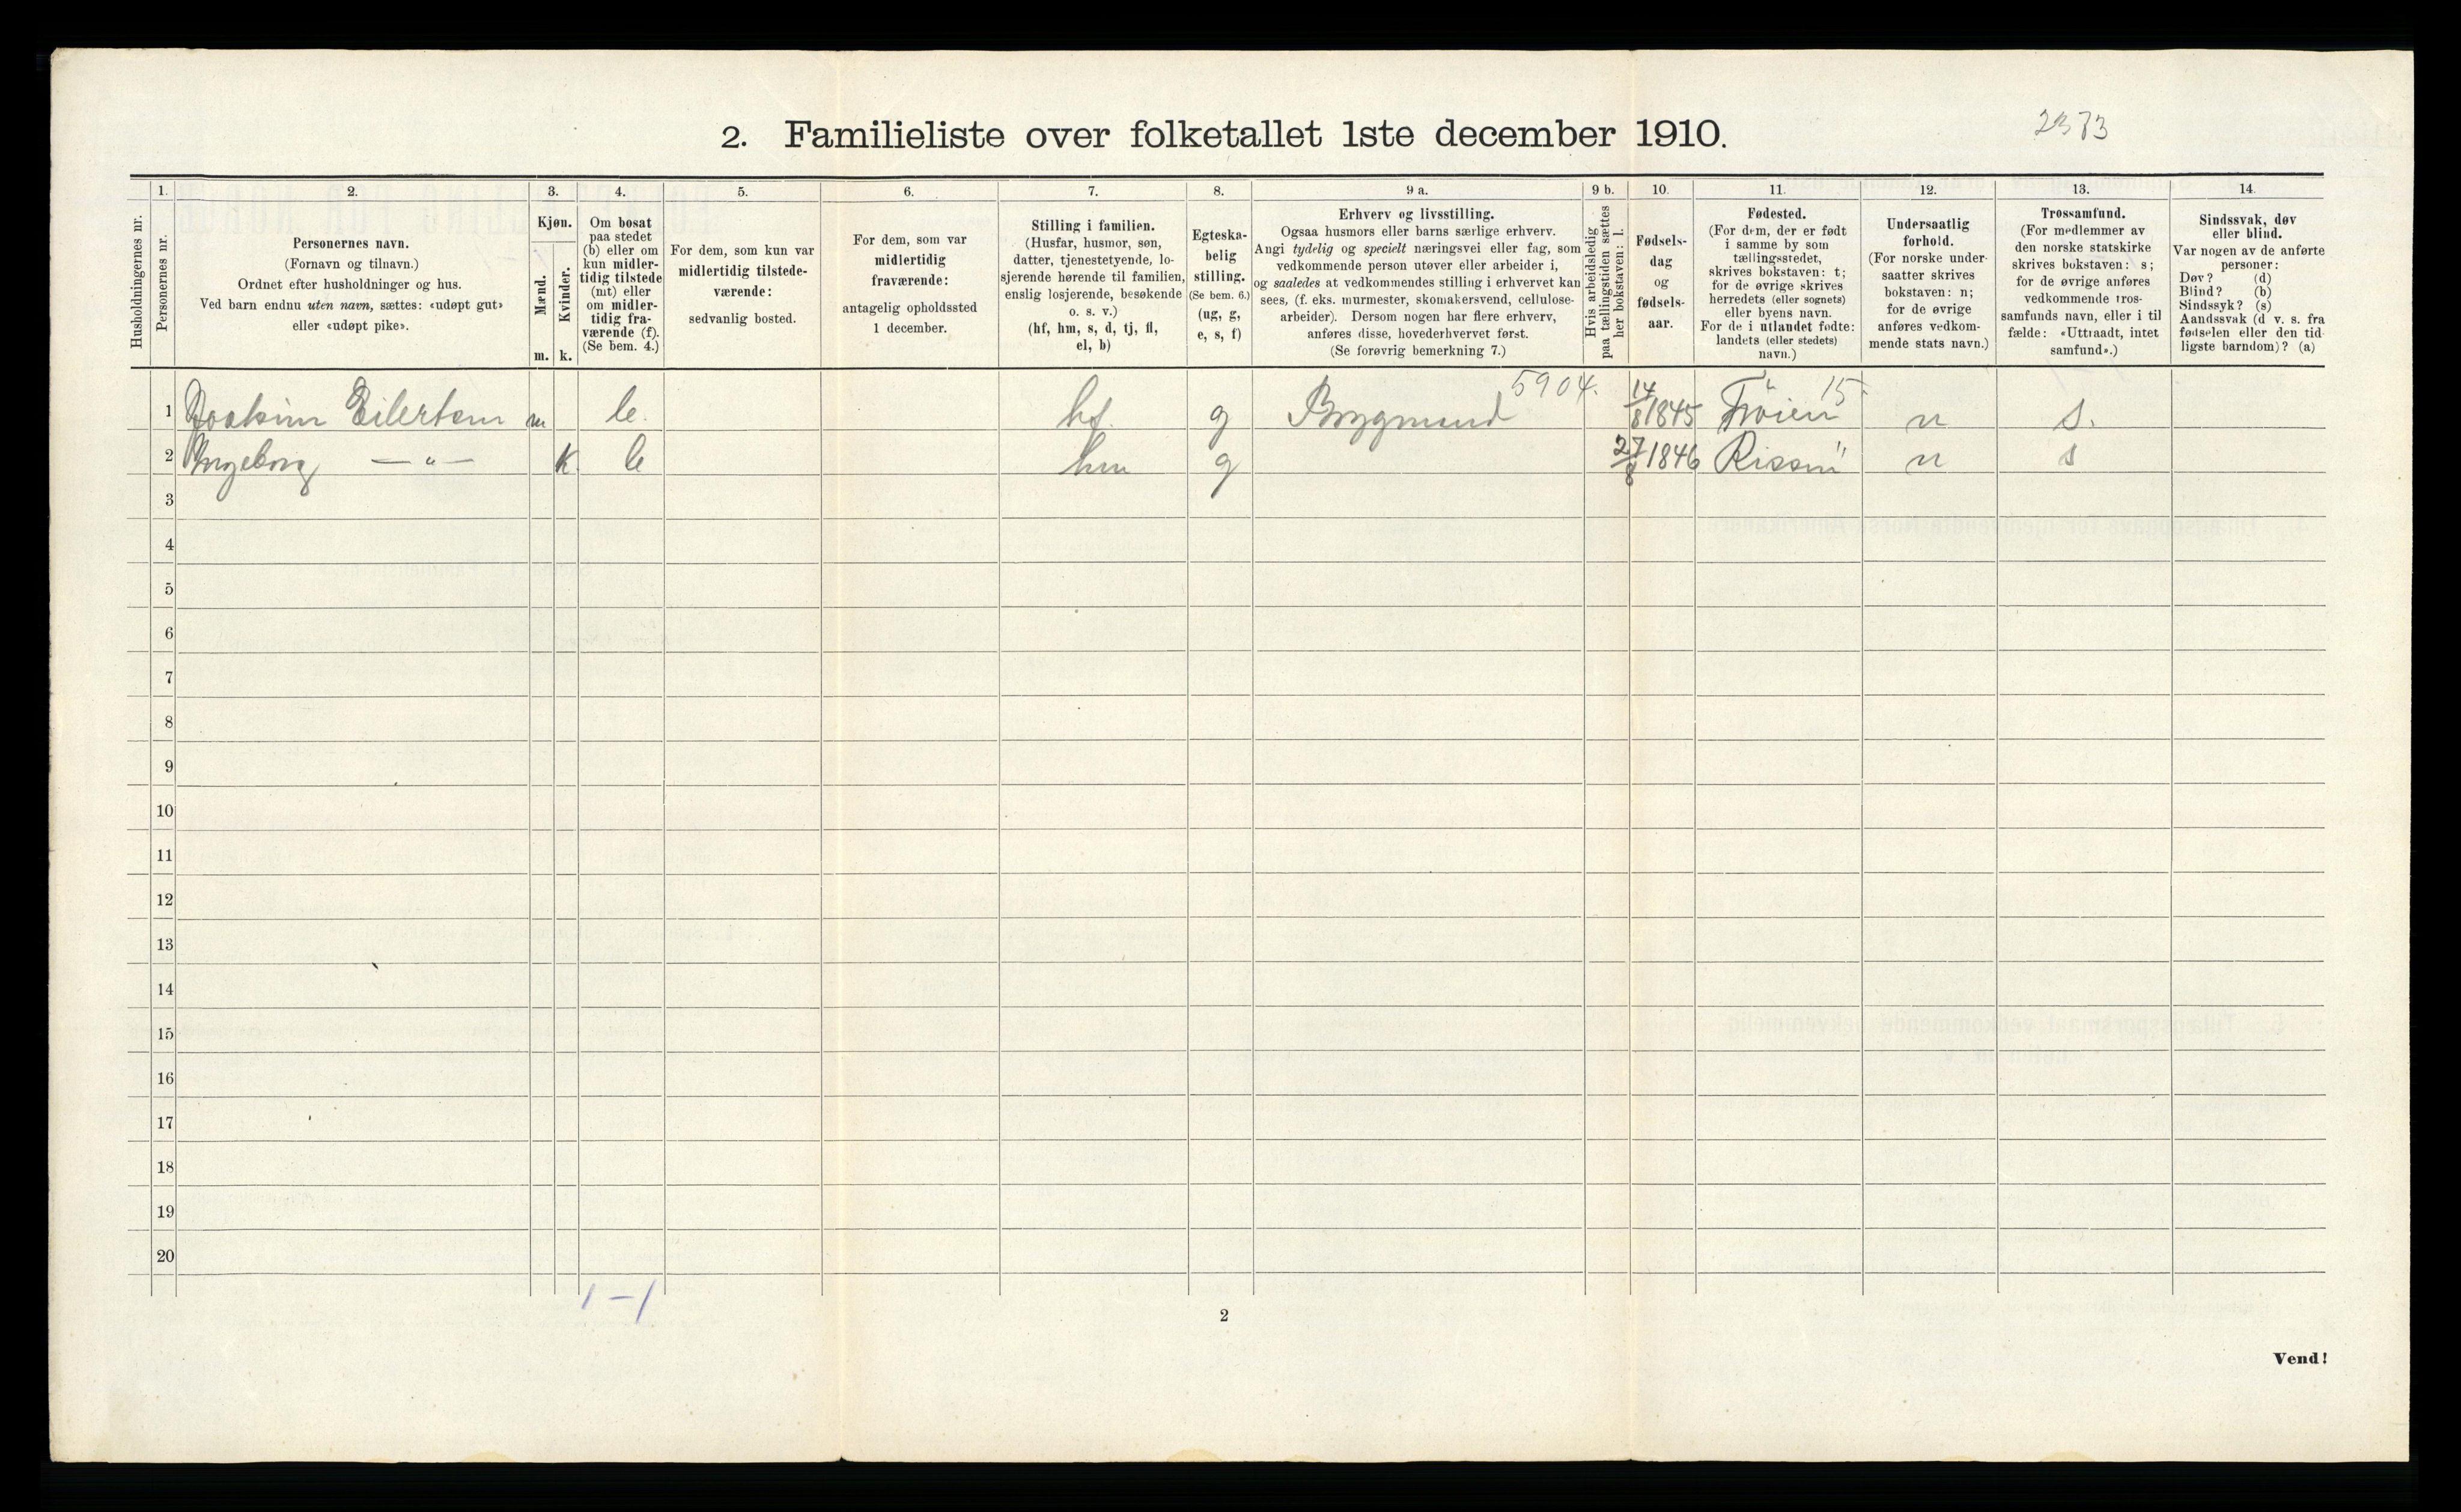 2. Familieliste over folketallet 1ste december 1910.
2373
1. 2. 3. 4. 5. 6. 7. 8. 9 a. 9 b. 10. 11. 12. 13. 14.
Husholdningernes nr.
Personernes nr.
Personernes navn.
(Fornavn og tilnavn.)
Ordnet efter husholdninger og hus.
Ved barn endnu uten navn, sættes: «udøpt gut»
eller «udøpt pike».
Kjøn.
Mænd.
Kvinder.
m. k.
Om bosat
paa stedet
(b) eller om
kun midler-
tidig tilstede
(mt) eller
om midler-
tidig fra-
værende (f).
(Se bem. 4.)
For dem, som kun var
midlertidig tilstede-
værende:
sedvanlig bosted.
For dem, som var
midlertidig
fraværende:
antagelig opholdssted
1 december.
Stilling i familien.
(Husfar, husmor, søn,
datter, tjenestetyende, lo-
sjerende hørende til familien,
enslig losjerende, besøkende
o. s. v.)
(hf, hm, s, d, tj, fl,
el, b)
Egteska-
belig
stilling.
(Se bem. 6.)
(ug, g,
e, s, f)
Erhverv og livsstilling.
Ogsaa husmors eller barns særlige erhverv.
Angi tydelig og specielt næringsvei eller fag, som
vedkommende person utøver eller arbeider i,
og saaledes at vedkommendes stilling i erhvervet kan
sees, (f. eks. murmester, skomakersvend, cellulose-
arbeider). Dersom nogen har flere erhverv,
anføres disse, hovederhvervet først.
(Se forøvrig bemerkning 7.)
Hvis arbeidsledig
paa tællingstiden sættes
her bokstaven: l.
Fødsels-
dag
og
fødsels-
aar.
Fødested.
(For dem, der er født
i samme by som
tællingsstedet,
skrives bokstaven: t;
for de øvrige skrives
herredets (eller sognets)
eller byens navn.
For de i utlandet fødte:
landets (eller stedets)
navn.)
Undersaatlig
forhold.
(For norske under-
saatter skrives
bokstaven: n;
for de øvrige
anføres vedkom-
mende stats navn.)
Trossamfund.
(For medlemmer av
den norske statskirke
skrives bokstaven: s;
for de øvrige anføres
vedkommende tros-
samfunds navn, eller i til-
fælde: «Uttraadt, intet
samfund».)
Sindssvak, døv
eller blind.
Var nogen av de anførte
personer:
Døv? (d)
Blind? (b)
Sindssyk? (s)
Aandssvak (d v. s. fra
fødselen eller den tid-
ligste barndom)? (a)
5904. 15
1 Joakim Eilertsen m b. hf. g Brygmand 14/8 1845 Frøien n s.
2 Ingeborg —"— k b hm g 27/8 1846 Rissen " n s
3
4
5
6
7
8
9
10
11
12
13
14
15
16
17
18
19
20
1 – 1
2
Vend!